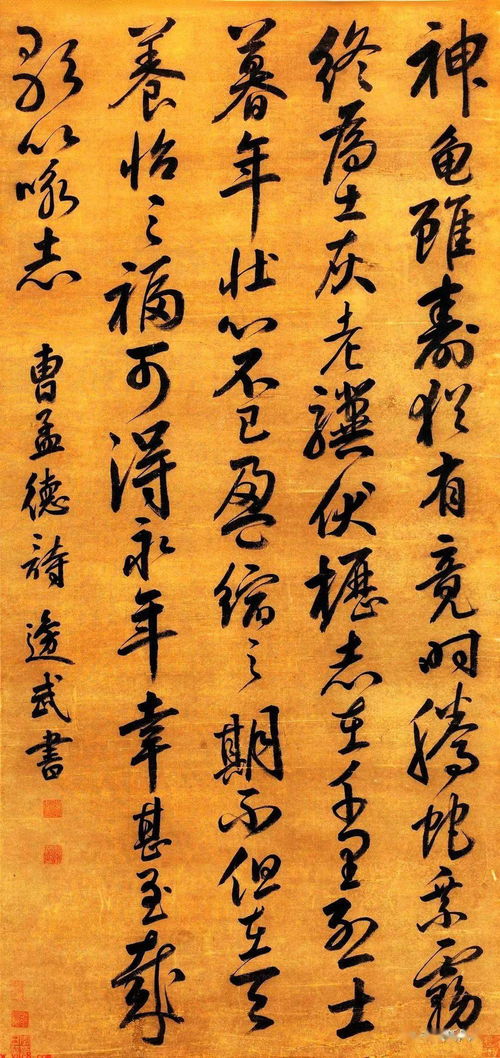 神龜雖壽猶有竟時騰蛇乘霧
終為土灰老驥伏櫪志在千里烈士
暮年壯心不已盈縮之期不但在天
養怡之福可得永年幸甚至哉
歌以咏志 曹孟德詩 邊武書